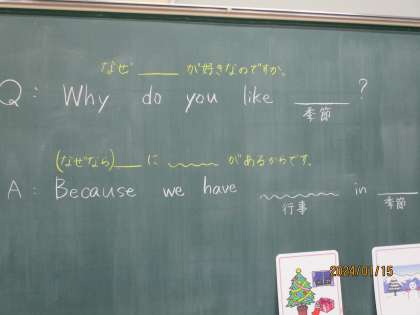 なぜ ____ が好きなのですか。
Q: Why do you like ____?
季節
(なぜなら)____ に ﹏﹏﹏ があるからです。
A: Because we have ﹏﹏﹏ in ____
行事 季節
2024/01/15